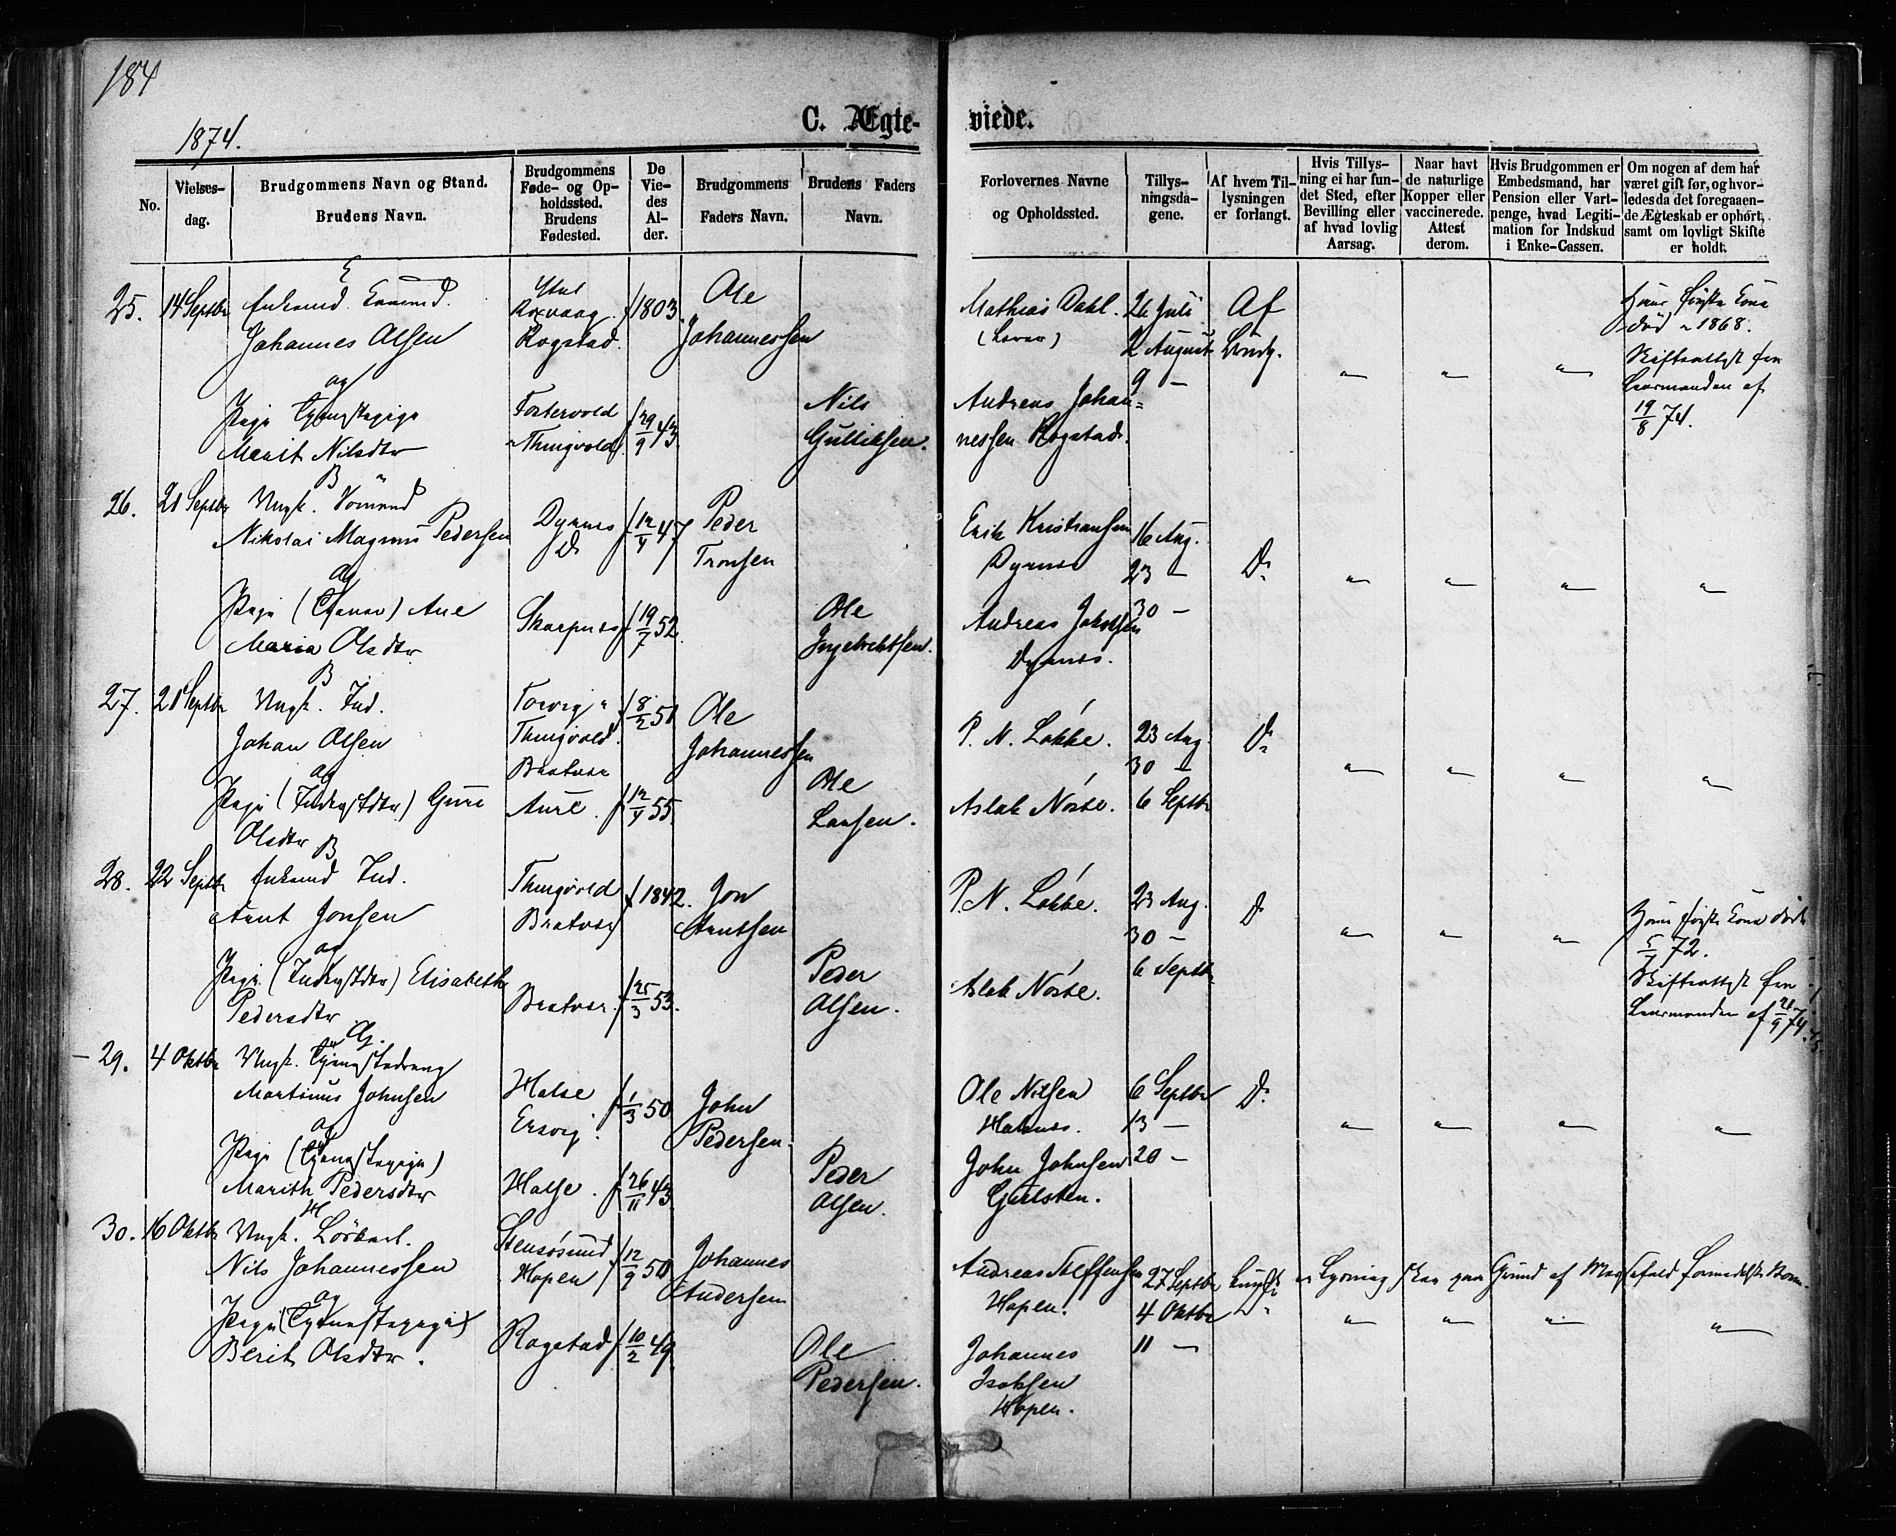 184
1874.
C. Ægte-
viede.
No.
Vielses-
dag.
Brudgommens Navn og Stand.
Brudens Navn.
Brudgommens
Føde- og Op-
holdssted.
Brudens
Fødested.
De
Vie-
des
Al-
der.
Brudgommens
Faders Navn.
Brudens Faders
Navn.
Forlovernes Navne
og Opholdssted.
Tillys-
ningsda-
gene.
Af hvem Til-
lysningen
er forlangt.
Hvis Tillys-
ning ei har fun-
det Sted, efter
Bevilling eller
af hvad lovlig
Aarsag.
Naar havt
de naturlige
Kopper eller
vaccinerede.
Attest
derom.
Hvis Brudgommen er
Embedsmand, har
Pension eller Vart-
penge, hvad Legiti-
mation for Indskud
i Enke-Cassen.
Om nogen af dem har
været gift før, og hvor-
ledes da det foregaaen-
de Ægteskab er ophørt,
samt om lovligt Skifte
er holdt.
25.
14 Septbr
E
Enkemd
Johannes Olsen
og
Pige
Marit Nilsdtr
Roxvaag
Rogstad.
Fostervold
Thingvold
f 1803.
f 29/9 43
Ole
Johannessen
Nils
Gulliksen.
Mathias Dahl.
Andreas Johan=
nessen Rogstad.
26 Juli
2 August
9 —
Af
Brudg.
" " "
Hans første Kone
død 1868.
Skifteattest fra
Lensmanden af
19/8 74.
26.
21 Septbr
B
Ungk.
Nikolai Magnus Pedersen
og
Pige ( ) Ane
Maria Olsdtr
Dyrnes
D
Skarpnes
f 12/4 47
f 19/7 52.
Peder
Tronsen
Ole
Ingebrektsen.
Erik Kristiansen
Dyrnes
Andreas Jakobsen
Dyrnes.
16 Aug.
23 —
30 —
Do
" " " "
27.
21 Septbr
B
Ungk. Ind.
Johan Olsen
og
Pige (Inderstdtr) Guri
Olsdtr
Torvig
Thingvold.
Bratvær
Aure.
f 8/2 51
f 12/4 55
Ole
Johannessen
Ole
Larsen.
P. N. Løkke.
Aslak Nøste.
23 Aug.
30 —
6 Septbr
Do
" " " "
28.
22 Septbr
B
Enkemd Ind.
Arnt Jonsen
og
Pige (Inderstdtr) Elisabeth
Pedersdtr
Thingvold
Bratvær
Bratvær.
f 1842.
f 25/3 53.
Jon
Arntsen
Peder
Olsen.
P. N. Løkke.
Aslak Nøste.
23 Aug.
30 —
6 Septbr
Do
" " "
Hans første Kone død
72.
Skifteattest fra
Lensmanden af 21/9 74.
29.
4 Oktbr
Ungk. Tjenestedreng
Martinus Johnsen
og
Pige (Tjenestepige)
Marith Pedersdtr
Halse
Ersvig.
Halse.
f 1/3 50
f 26/11 43
John
Pedersen.
Peder
Olsen.
Ole Nilsen
Halsnes.
John Johnsen
6 Septbr
13 —
20 —
Do
" " " "
30.
16 Oktbr
H
Ungk.
Nils Johannessen
og
Pige (Tjenestepige)
Berit Olsdtr.
Stensøsund
Hopen
Rogstad
f 12/9 50
f 10/2 49
Johannes
Andersen
Ole
Pedersen.
Andreas Steffensen
Hopen.
Johannes
Isaksen
Hopen.
27 Septbr
4 Oktbr
11 —
Do
Lysning paa Grund af
" " " "